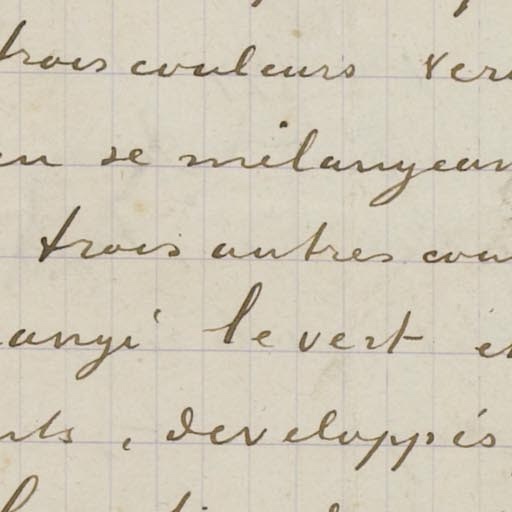 trois couleurs
en se mélangean
trois autres cou
le vert et
, developpés